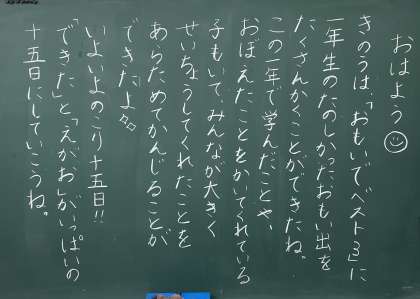 おはよう
きのうは、「おもいでベスト3」に
一年生のたのしかったおもい出を
たくさんかくことができたね。
この一年で学んだことや、
おぼえたことをかいてくれている
子もいて、みんなが大きく
せいちょうしてくれたことを
あらためてかんじることが
できたよ
いよいよのこり十五日!!
「できた」と「えがお」がいっぱいの
十五日にしていこうね。